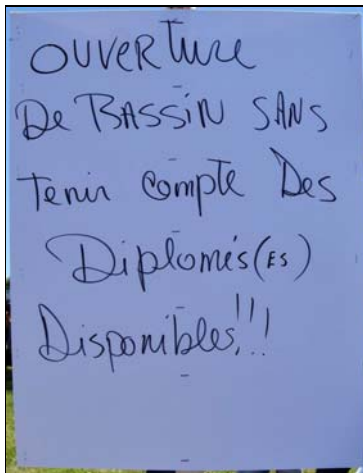 OUVERTURE
De BASSIN SANS
tenir compte Des
Diplomés(ES)
Disponibles!!!